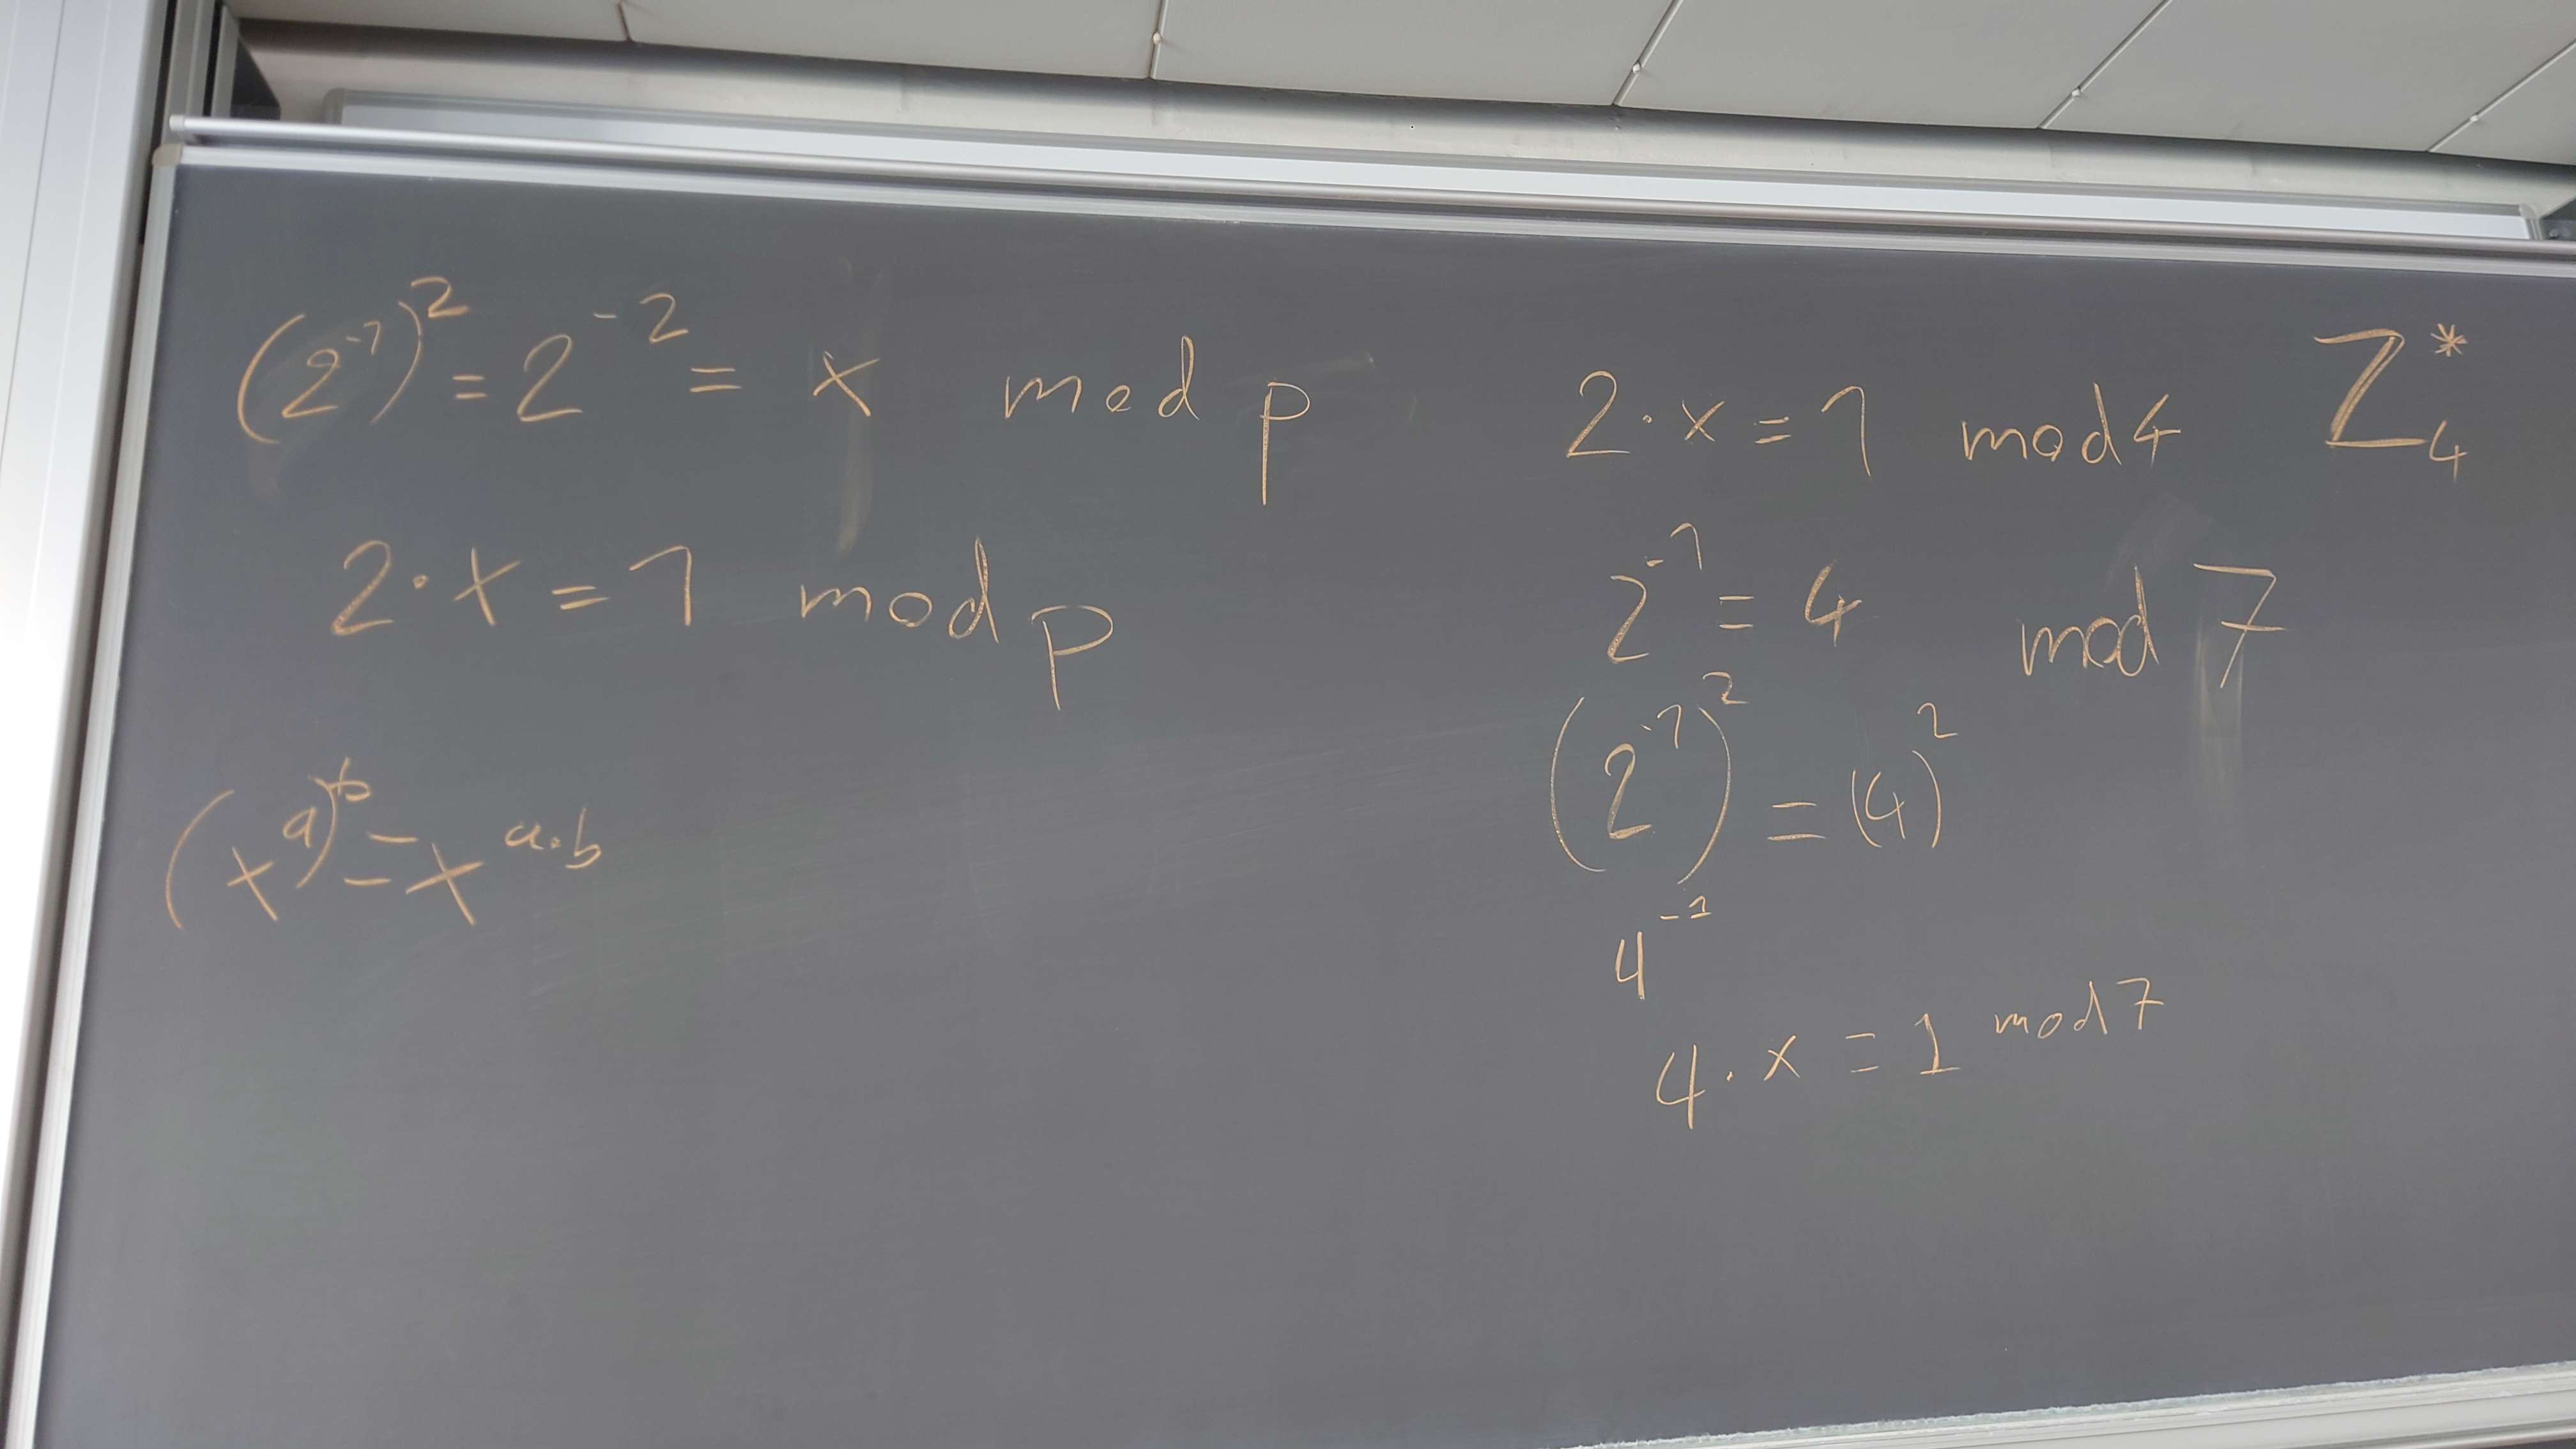 (2⁻¹)² = 2⁻² = x mod p
2·x = 1 mod p
(xᵃ)ᵇ = xᵃ·ᵇ
2·x = 1 mod 4 Z₄*
2⁻¹ = 4 mod 7
(2⁻¹)² = (4)²
4⁻¹
4·x = 1 mod 7